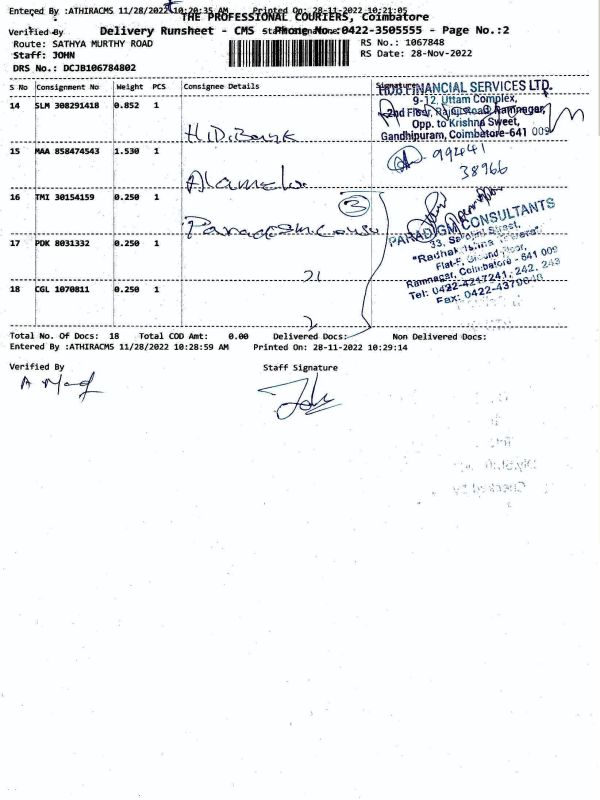 Entered By :ATHIRACMS 11/28/2022 10:20:35 AM Printed On: 28-11-2022 10:21:05
THE PROFESSIONAL COURIERS, Coimbatore
Verified By Delivery Runsheet - CMS Staff Signature Phone No.:0422-3505555 - Page No.:2
Route: SATHYA MURTHY ROAD
RS No.: 1067848
Staff: JOHN
RS Date: 28-Nov-2022
DRS No.: DCJB106784802
S No Consignment No Weight PCS Consignee Details Signature
HDB FINANCIAL SERVICES LTD.
9-12, Uttam Complex,
2nd Floor, Rajaji Road, Ramnagar,
Opp. to Krishna Sweet,
Gandhipuram, Coimbatore-641 009
14 SLM 308291418 0.852 1
H.D. Bank
15 MAA 858474543 1.530 1
99441
38966
Alamelu
16 TMI 30154159 0.250 1
3
Paradigm Consu
PARADIGM CONSULTANTS
33, Street,
"Radha
Flat-F, Ground Floor,
Ramnagar, Coimbatore - 641 009
Tel: 0422-4217241, 242, 243
Fax: 0422-43700
17 PDK 8031332 0.250 1
18 CGL 1070811 0.250 1
Total No. Of Docs: 18 Total COD Amt: 0.00 Delivered Docs: Non Delivered Docs:
Entered By :ATHIRACMS 11/28/2022 10:28:59 AM Printed On: 28-11-2022 10:29:14
Verified By Staff Signature